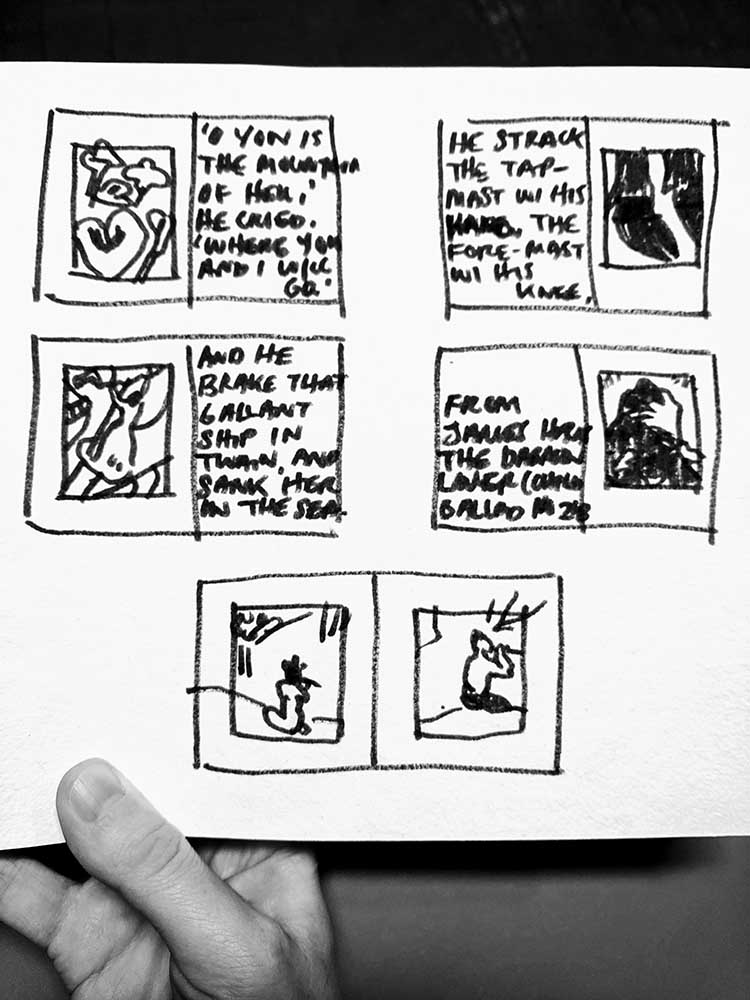 'O YON IS
THE MOUNTAIN
OF HELL,'
HE CRIED.
'WHERE YOU
AND I WILL
GO.'
HE STRACK
THE TAP-
MAST WI HIS
HAND, THE
FORE-MAST
WI HIS
KNEE,
AND HE
BRAKE THAT
GALLANT
SHIP IN
TWAIN, AND
SANK HER
IN THE SEA.
FROM
JAMES
THE DAEMON
LOVER (CHILD
BALLAD